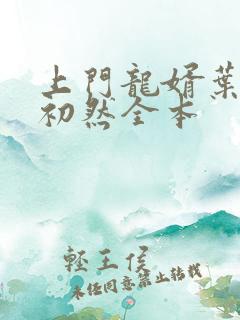 上門龍婿葉
初然全本
輕王侯
未經同意禁止轉載